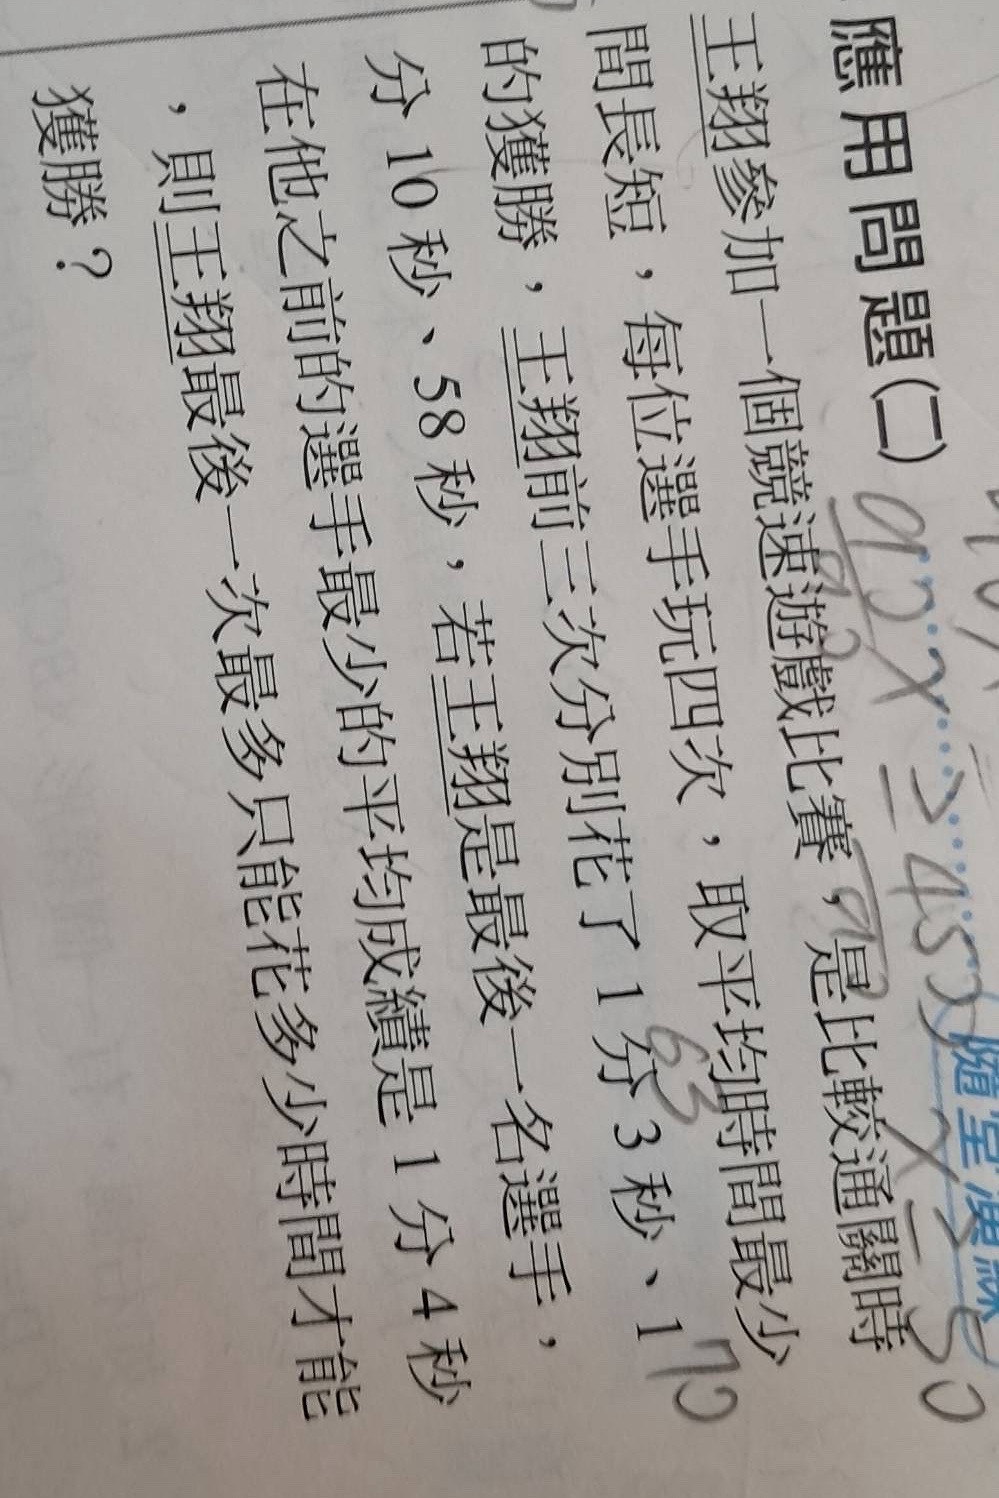 應用問題(二)
王翔參加一個競速遊戲比賽，是比較通關時
間長短，每位選手玩四次，取平均時間最少
的獲勝，王翔前三次分別花了 1 分 3 秒、1
分 10 秒、58 秒，若王翔是最後一名選手，
在他之前的選手最少的平均成績是 1 分 4 秒
，則王翔最後一次最多只能花多少時間才能
獲勝？
63
70
隨堂演練